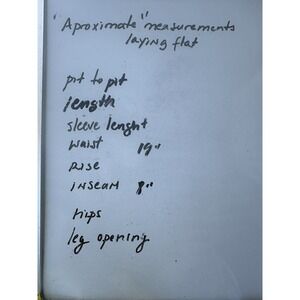 "Aproximate" measurements
laying flat
pit to pit
length
sleeve lenght
waist 19"
Rise
inseam 8"
hips
leg opening